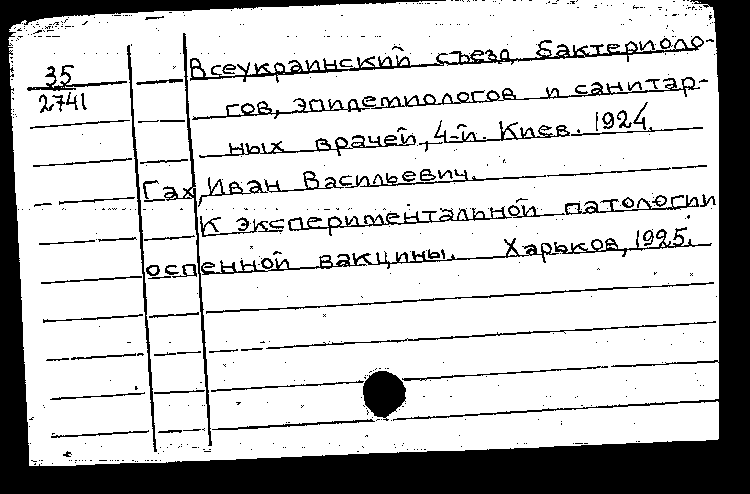 35
2741
Всеукраинский съезд бактериоло-
гов, эпидемиологов и санитар-
ных врачей, 4-й. Киев. 1924.
Гах, Иван Васильевич.
К экспериментальной патологии
оспенной вакцины. Харьков, 1925.